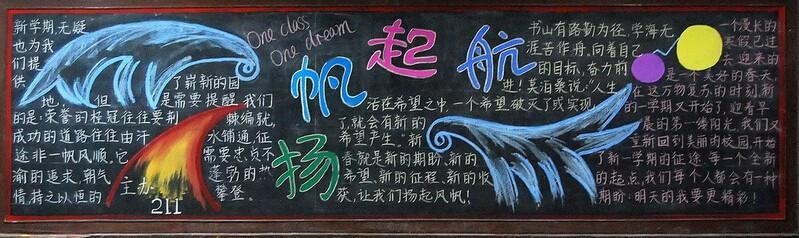 扬帆起航
One class
One dream
新学期,无疑
也为我
们提
供了崭新的园
地,但是需要提醒我们
的是:荣誉的桂冠往往要荆棘编就,
成功的道路往往由汗水铺通,征
途非一帆风顺,它需要忠贞不
渝的追求,朝气蓬勃的
情,持之以恒的攀登。
主办:
211
书山有路勤为径,学海无
涯苦作舟。向着自己
的目标,奋力前
进!吴泊乘说:“人生
活在希望之中,一个希望破灭了或实现
了,就会有新的
希望产生。”新
春就是新的期盼、新的
希望、新的征程、新的收
获,让我们扬起风帆!
一个漫长的
寒假已过
去,迎来的
是一个美好的春天,
在这万物复苏的时刻,新
的一学期又开始了,迎着早
晨的第一缕阳光,我们又
重新回到美丽的校园,开始
了新一学期的征途。每一个全新
的起点,我们每个人都会有一种
期盼:明天的我要更精彩!